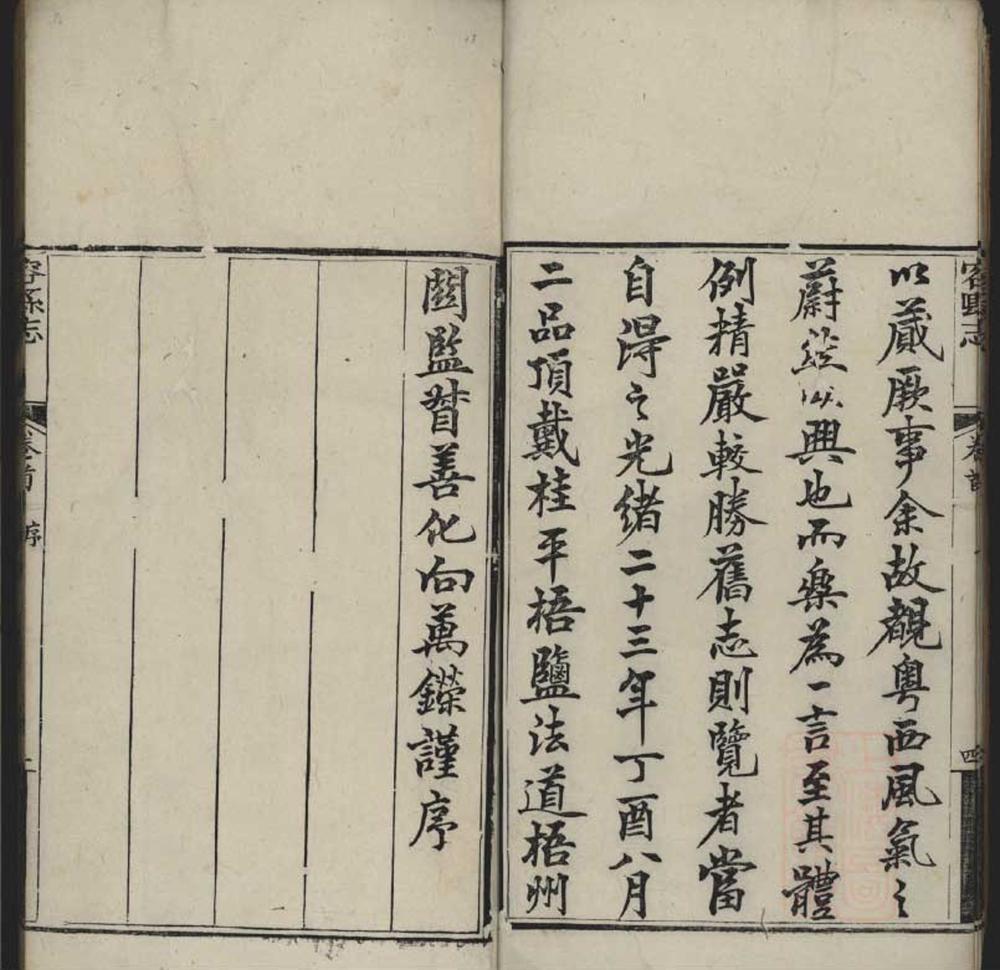 容縣志 卷首 四
以蕆厥事余故覩粵西風氣之
蔚然以興也而樂為一言至其體
例精嚴較勝舊志則覽者當
自得之光緒二十三年丁酉八月
二品頂戴桂平梧鹽法道梧州
關監督善化向萬鑅謹序
容縣志 卷首 序